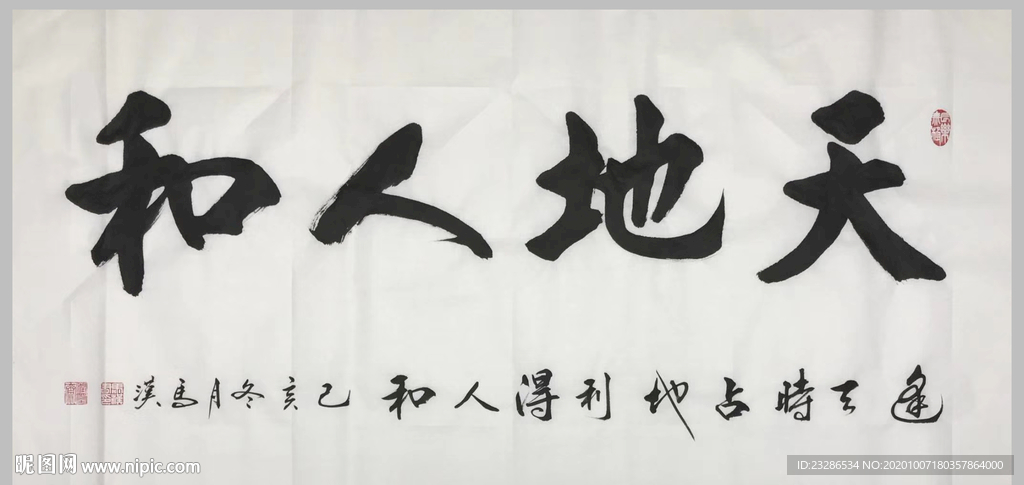 天地人和
逢天時占地利得人和己亥冬月馬漢
昵图网 www.nipic.com
ID:23286534 NO:20201007180357864000